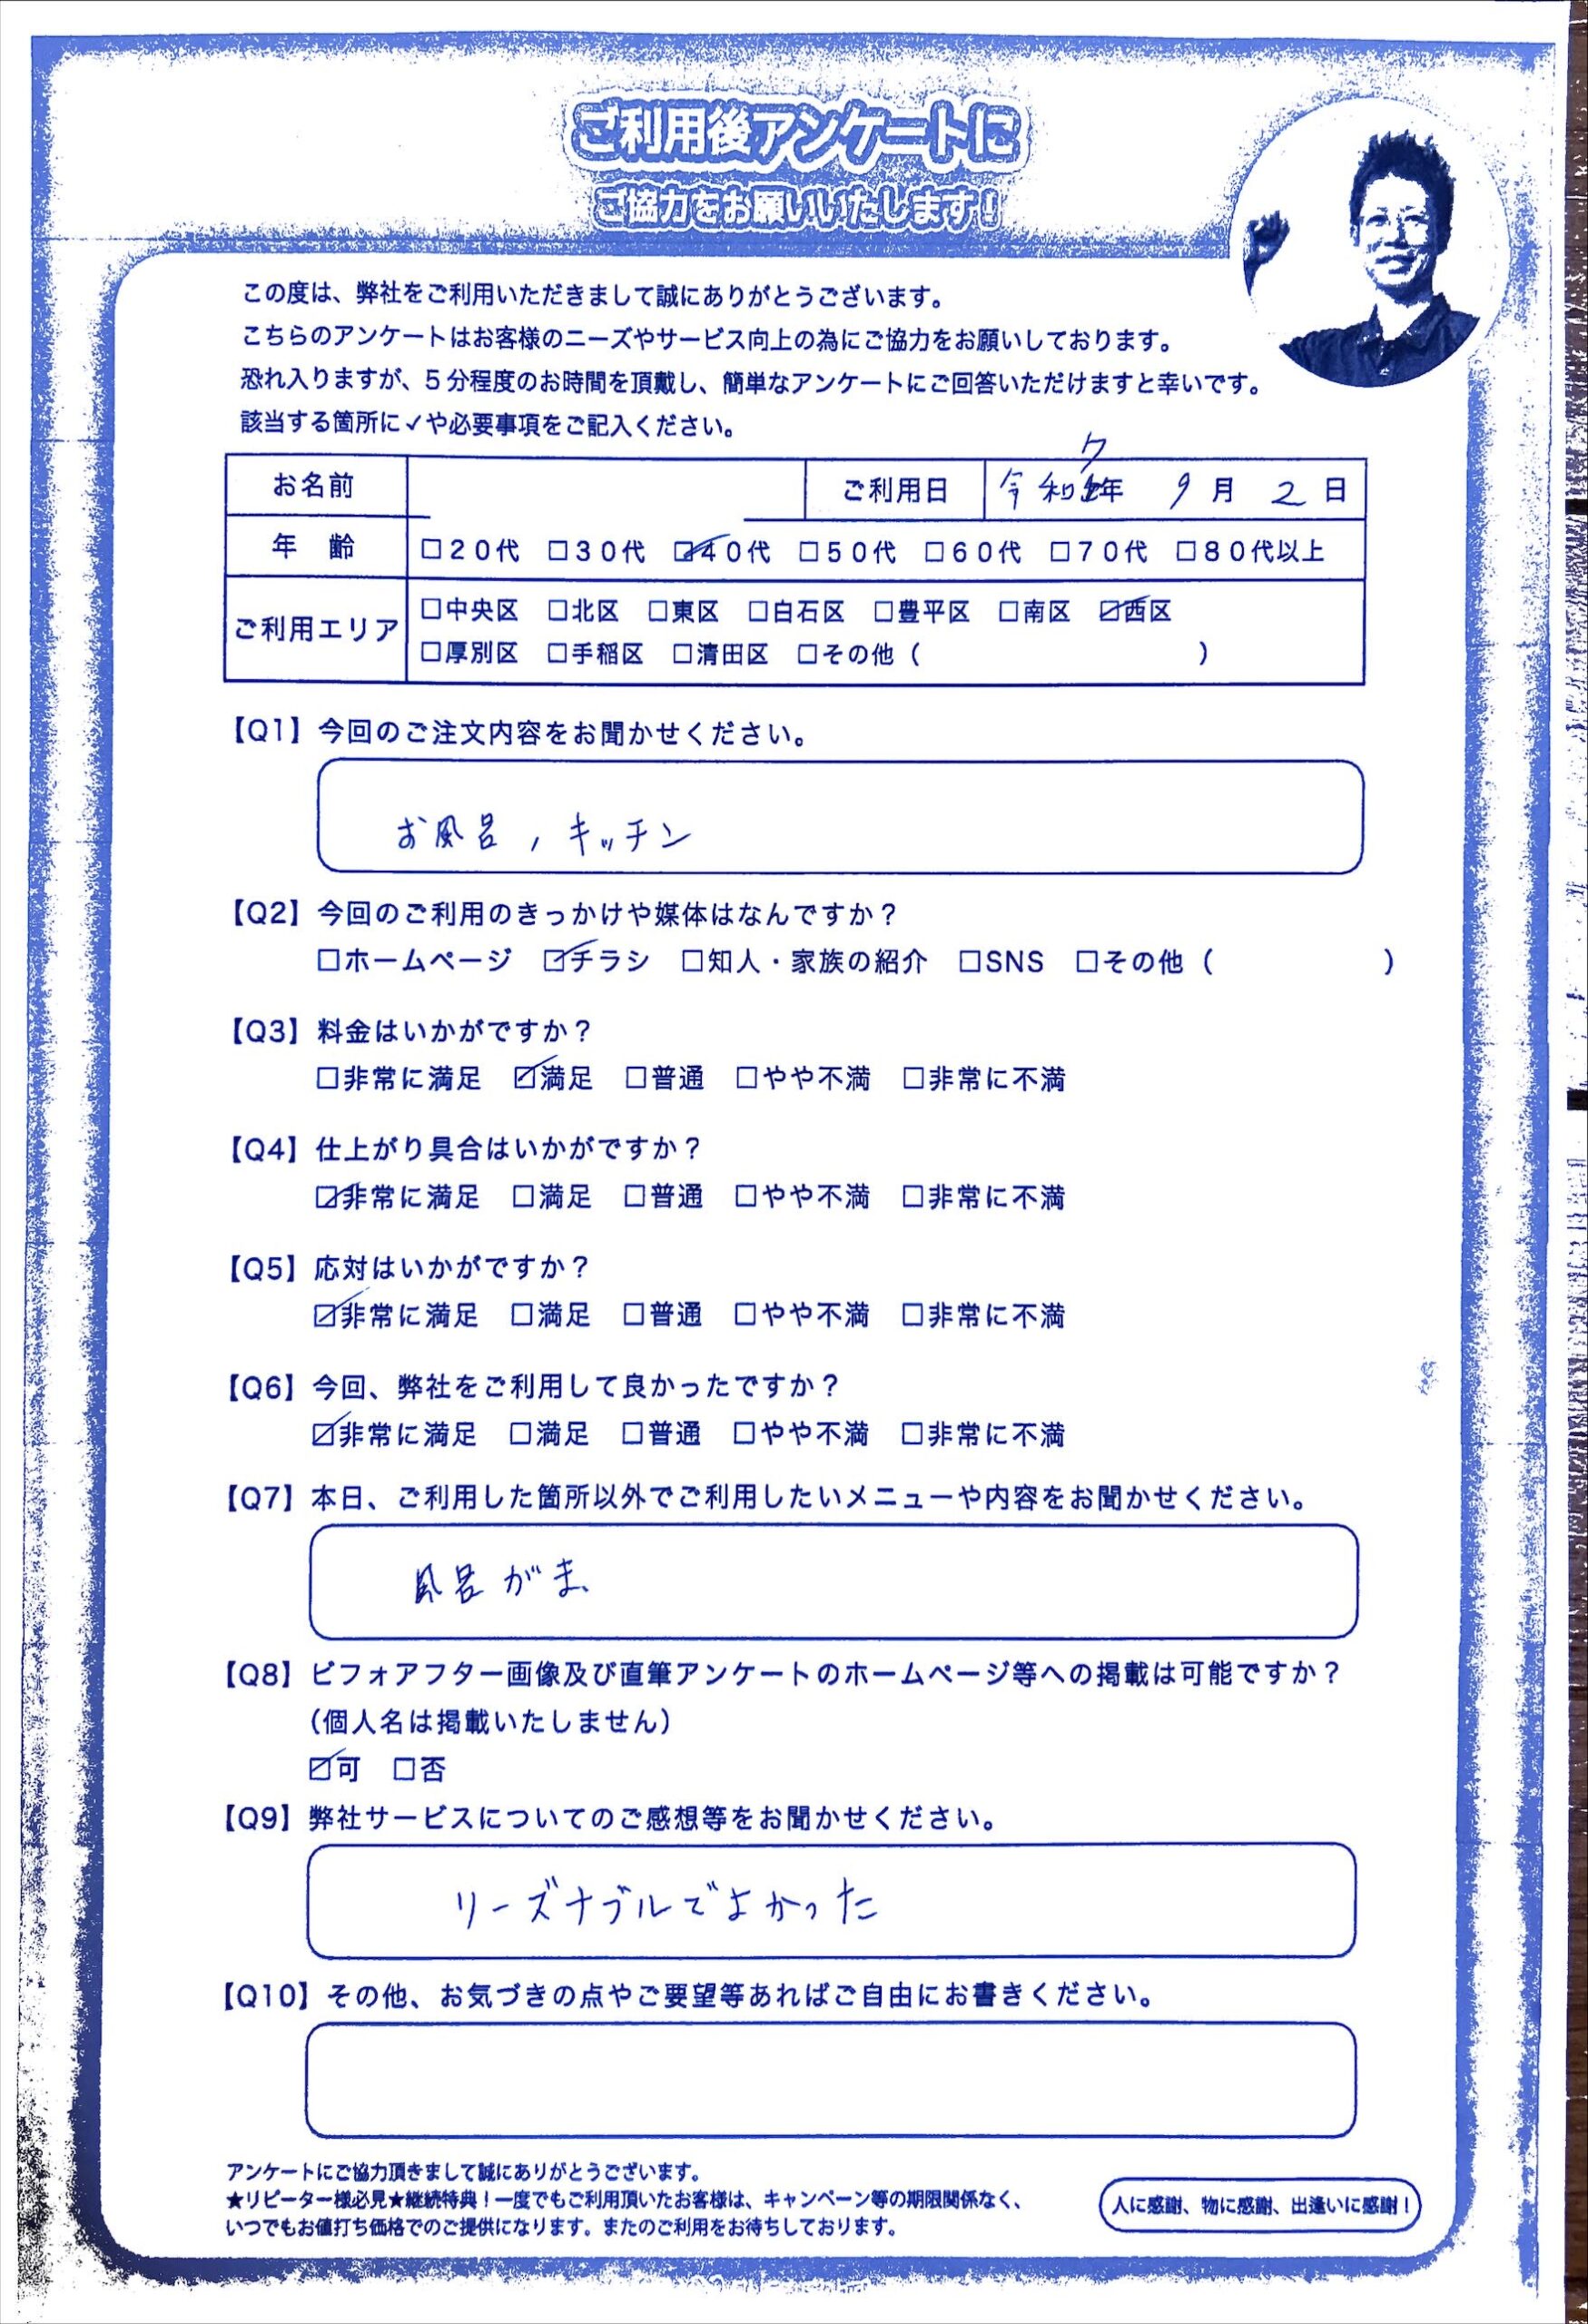 ご利用後アンケートに
ご協力をお願いいたします!
この度は、弊社をご利用いただきまして誠にありがとうございます。
こちらのアンケートはお客様のニーズやサービス向上の為にご協力をお願いしております。
恐れ入りますが、5分程度のお時間を頂戴し、簡単なアンケートにご回答いただけますと幸いです。
該当する箇所に✓や必要事項をご記入ください。
お名前 ご利用日 令和7年 9月 2日
年 齢 □20代 □30代 ☑40代 □50代 □60代 □70代 □80代以上
ご利用エリア □中央区 □北区 □東区 □白石区 □豊平区 □南区 ☑西区
□厚別区 □手稲区 □清田区 □その他( )
【Q1】今回のご注文内容をお聞かせください。
お風呂,キッチン
【Q2】今回のご利用のきっかけや媒体はなんですか?
□ホームページ ☑チラシ □知人・家族の紹介 □SNS □その他( )
【Q3】料金はいかがですか?
□非常に満足 ☑満足 □普通 □やや不満 □非常に不満
【Q4】仕上がり具合はいかがですか?
☑非常に満足 □満足 □普通 □やや不満 □非常に不満
【Q5】応対はいかがですか?
☑非常に満足 □満足 □普通 □やや不満 □非常に不満
【Q6】今回、弊社をご利用して良かったですか?
☑非常に満足 □満足 □普通 □やや不満 □非常に不満
【Q7】本日、ご利用した箇所以外でご利用したいメニューや内容をお聞かせください。
風呂がま、
【Q8】ビフォアフター画像及び直筆アンケートのホームページ等への掲載は可能ですか?
(個人名は掲載いたしません)
☑可 □否
【Q9】弊社サービスについてのご感想等をお聞かせください。
リーズナブルでよかった
【Q10】その他、お気づきの点やご要望等あればご自由にお書きください。
アンケートにご協力頂きまして誠にありがとうございます。
★リピーター様必見★継続特典!一度でもご利用頂いたお客様は、キャンペーン等の期限関係なく、
いつでもお値打ち価格でのご提供になります。またのご利用をお待ちしております。
人に感謝、物に感謝、出逢いに感謝!